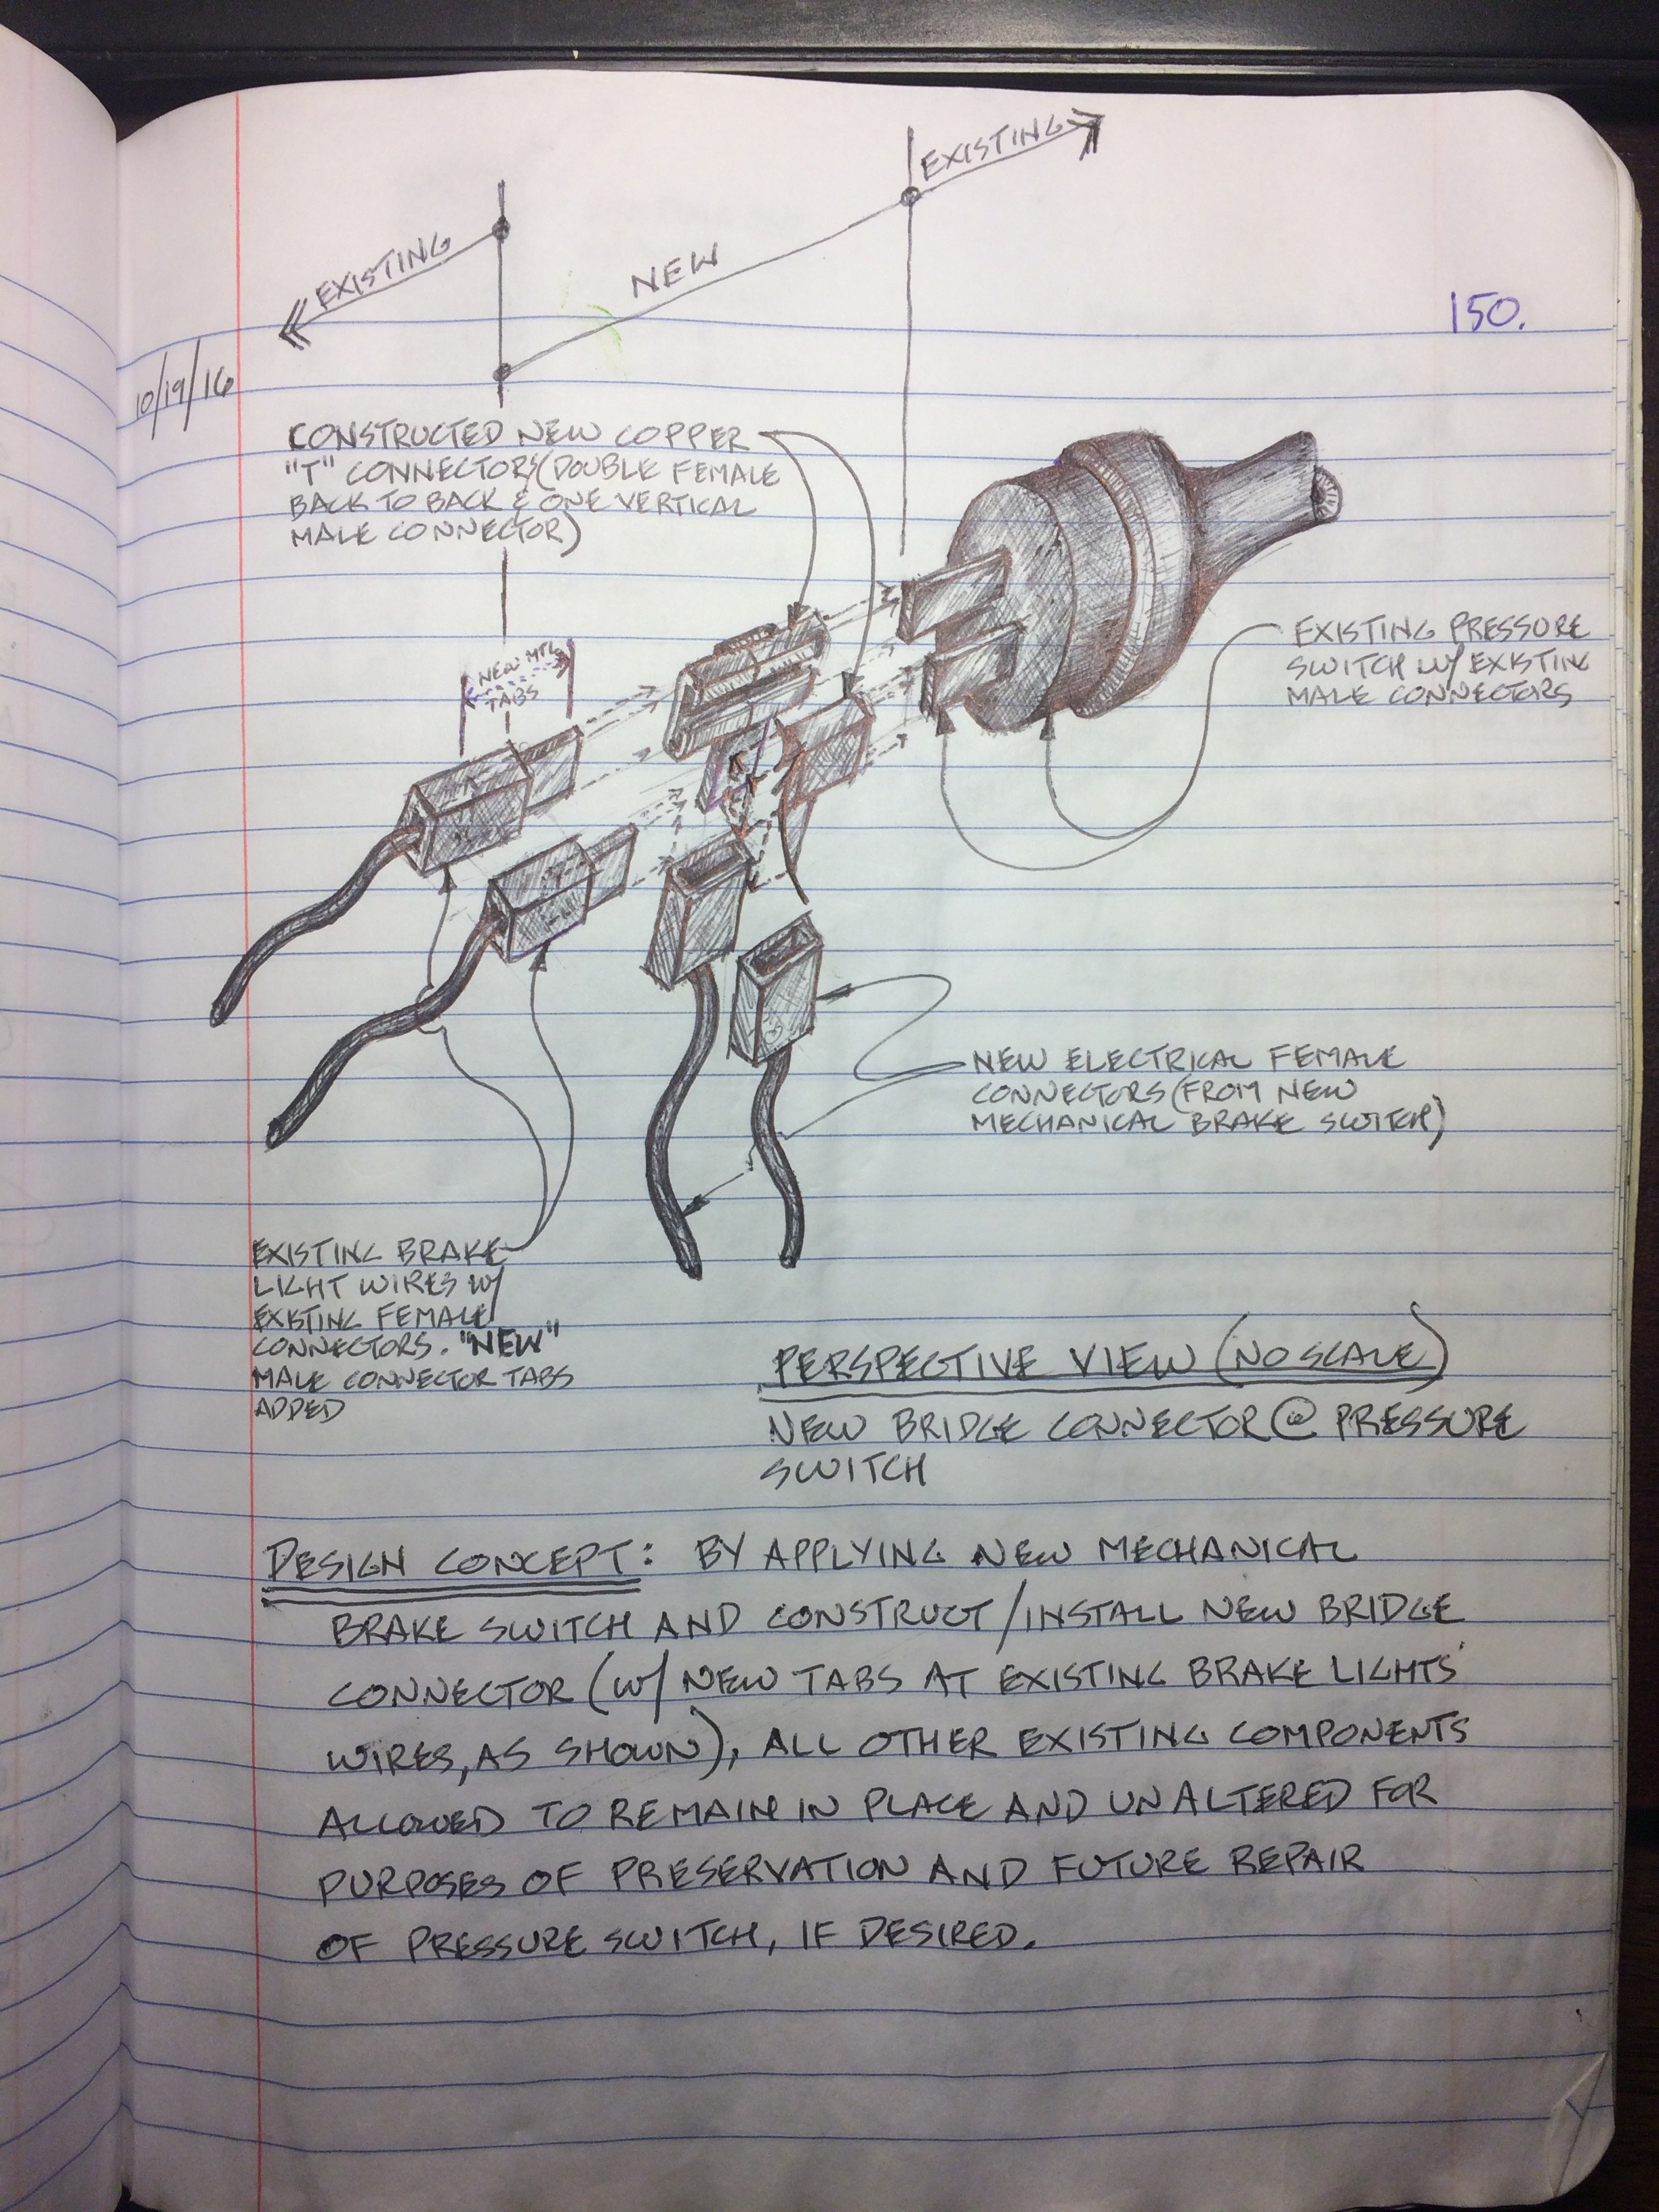 EXISTING
NEW
EXISTING
150.
10/19/16
CONSTRUCTED NEW COPPER
"T" CONNECTORS (DOUBLE FEMALE
BACK TO BACK & ONE VERTICAL
MALE CONNECTOR)
NEW MTL
TABS
EXISTING PRESSURE
SWITCH W/ EXISTING
MALE CONNECTORS
NEW ELECTRICAL FEMALE
CONNECTORS (FROM NEW
MECHANICAL BRAKE SWITCH)
EXISTING BRAKE
LIGHT WIRES W/
EXISTING FEMALE
CONNECTORS. "NEW"
MALE CONNECTOR TABS
ADDED
PERSPECTIVE VIEW (NO SCALE)
NEW BRIDGE CONNECTOR @ PRESSURE
SWITCH
DESIGN CONCEPT: BY APPLYING NEW MECHANICAL
BRAKE SWITCH AND CONSTRUCT/INSTALL NEW BRIDGE
CONNECTOR (W/ NEW TABS AT EXISTING BRAKE LIGHTS'
WIRES, AS SHOWN), ALL OTHER EXISTING COMPONENTS
ALLOWED TO REMAIN IN PLACE AND UNALTERED FOR
PURPOSES OF PRESERVATION AND FUTURE REPAIR
OF PRESSURE SWITCH, IF DESIRED.